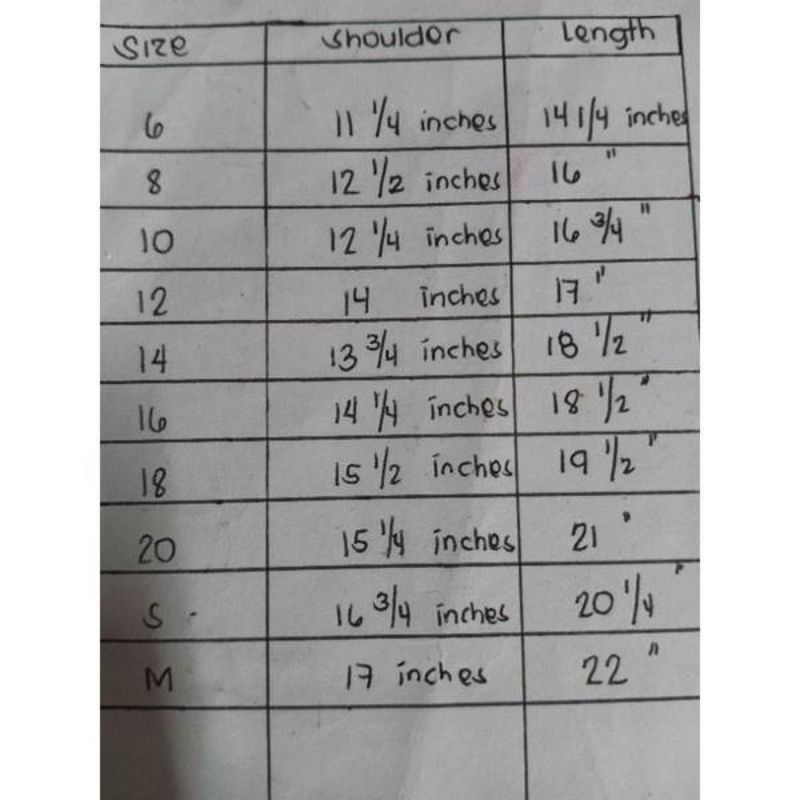 Size Shoulder Length
6 11 1/4 inches 14 1/4 inches
8 12 1/2 inches 16 "
10 12 1/4 inches 16 3/4 "
12 14 inches 17 "
14 13 3/4 inches 18 1/2 "
16 14 1/4 inches 18 1/2 "
18 15 1/2 inches 19 1/2 "
20 15 1/4 inches 21 "
S 16 3/4 inches 20 1/4 "
M 17 inches 22 "